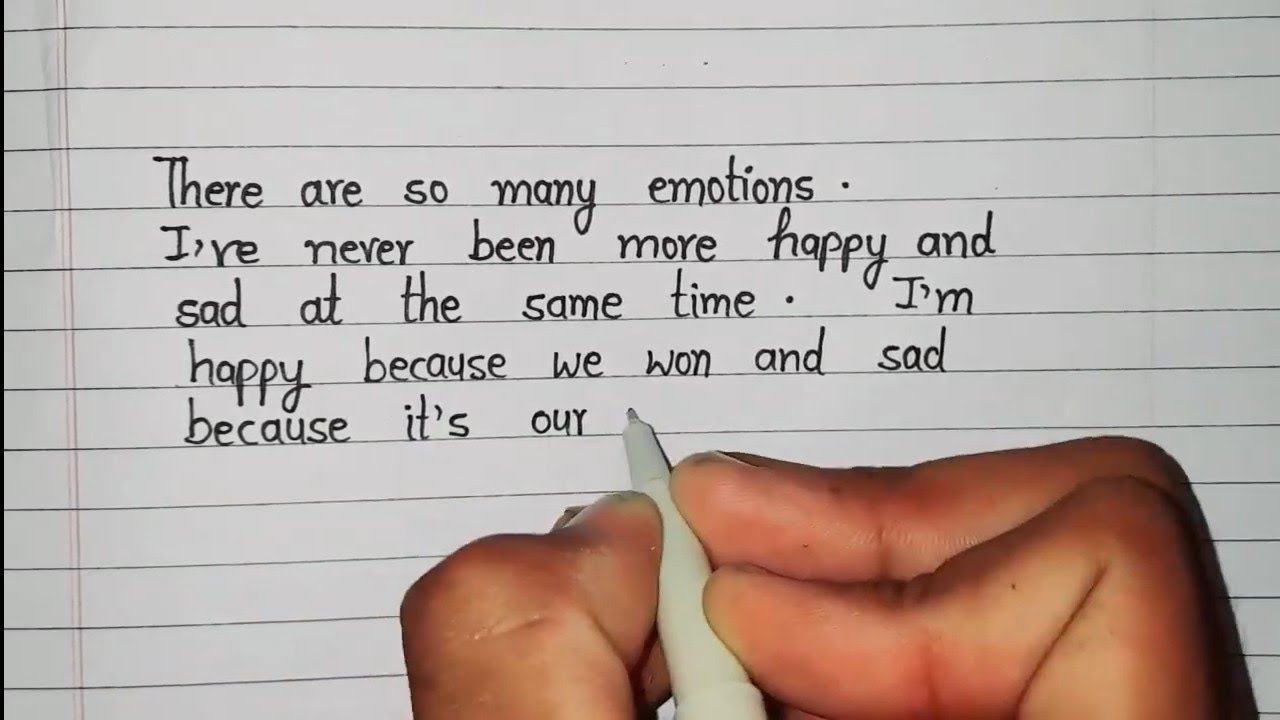 There are so many emotions.
I've never been more happy and
sad at the same time. I'm
happy because we won and sad
because it's our